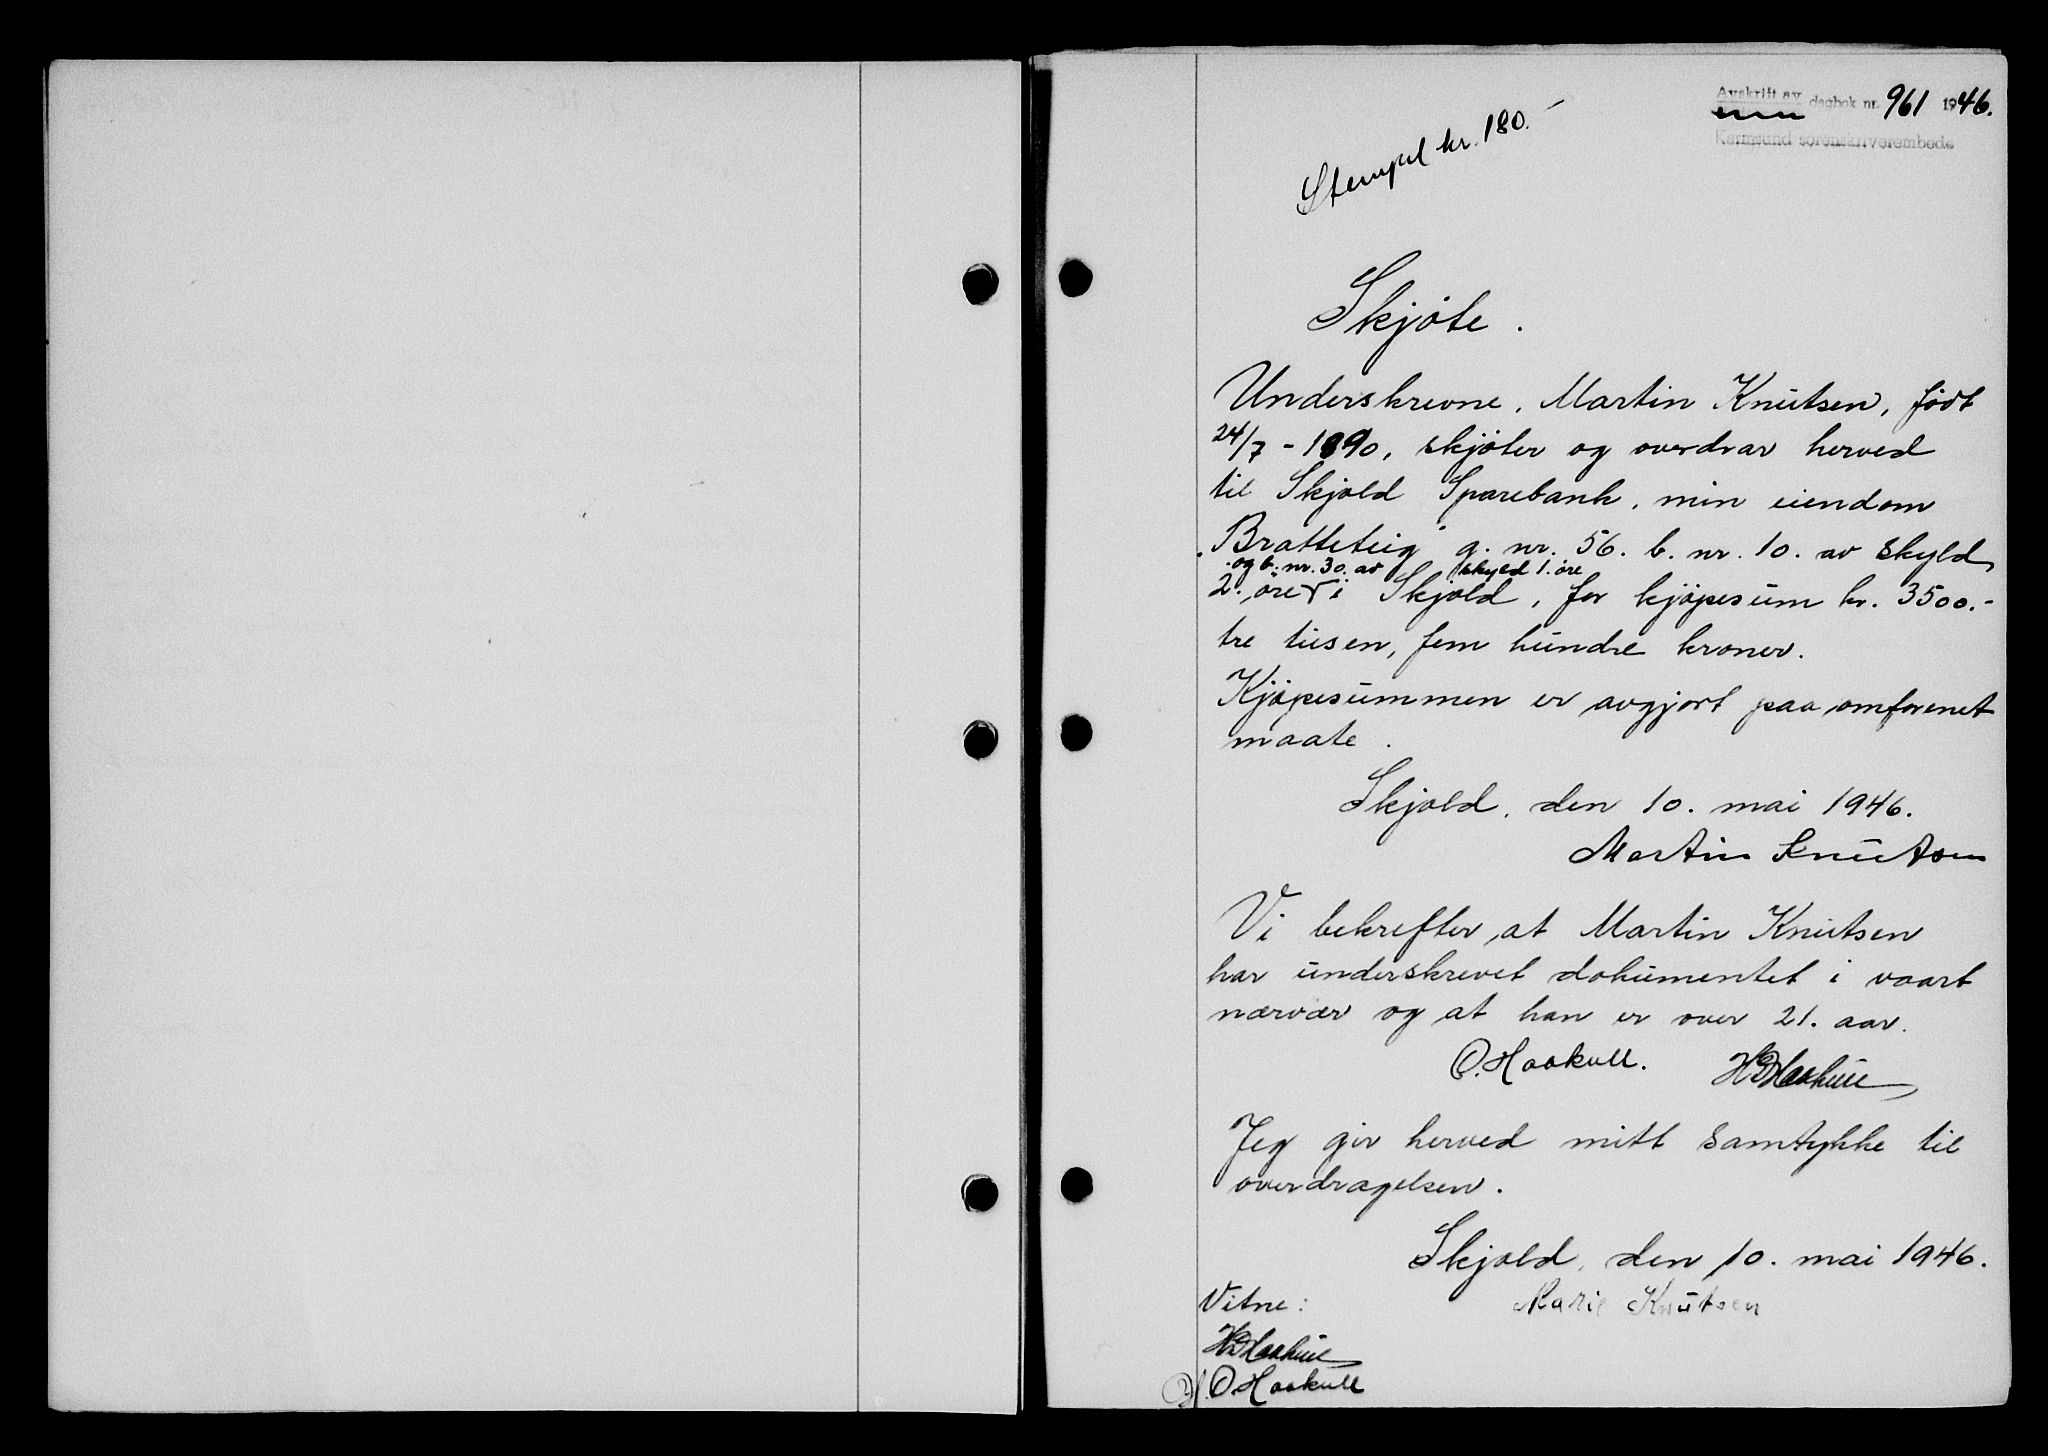 Avskrift av dagbok nr. 961 1946.
Karmsund sorenskriverembede
Stempel kr. 180.-
Skjøte.
Underskrevne, Martin Knutsen, født
24/7 - 1890, skjøter og overdrar herved
til Skjold Sparebank, min eiendom
"Bratteteig" g. nr. 56. b. nr. 10. av skyld
og b. nr. 30. av skyld 1. øre
2. øre i Skjold, for kjøpesum kr. 3500.-
tre tusen, fem hundre kroner.
Kjøpesummen er avgjort paa omforenet
maate.
Skjold, den 10. mai 1946.
Martin Knutsen
Vi bekrefter at Martin Knutsen
har underskrevet dokumentet i vaart
nærvær og at han er over 21. aar.
O. Haakull.
Jeg gir herved mitt samtykke til
overdragelsen.
Skjold, den 10. mai 1946.
Vitne: Marie Knutsen
O. Haakull